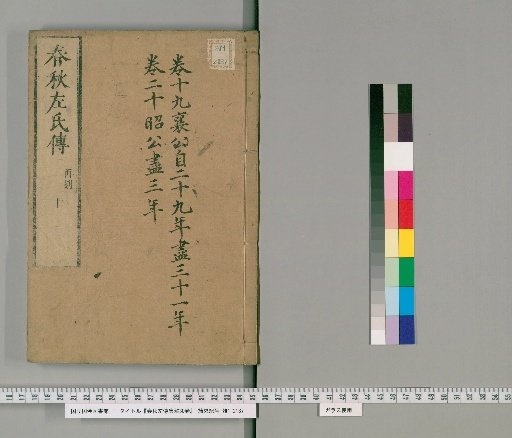 卷十九襄公自二十九年盡三十一年
卷二十昭公盡三年
春秋左氏傳
再刻
十
ガラス使用